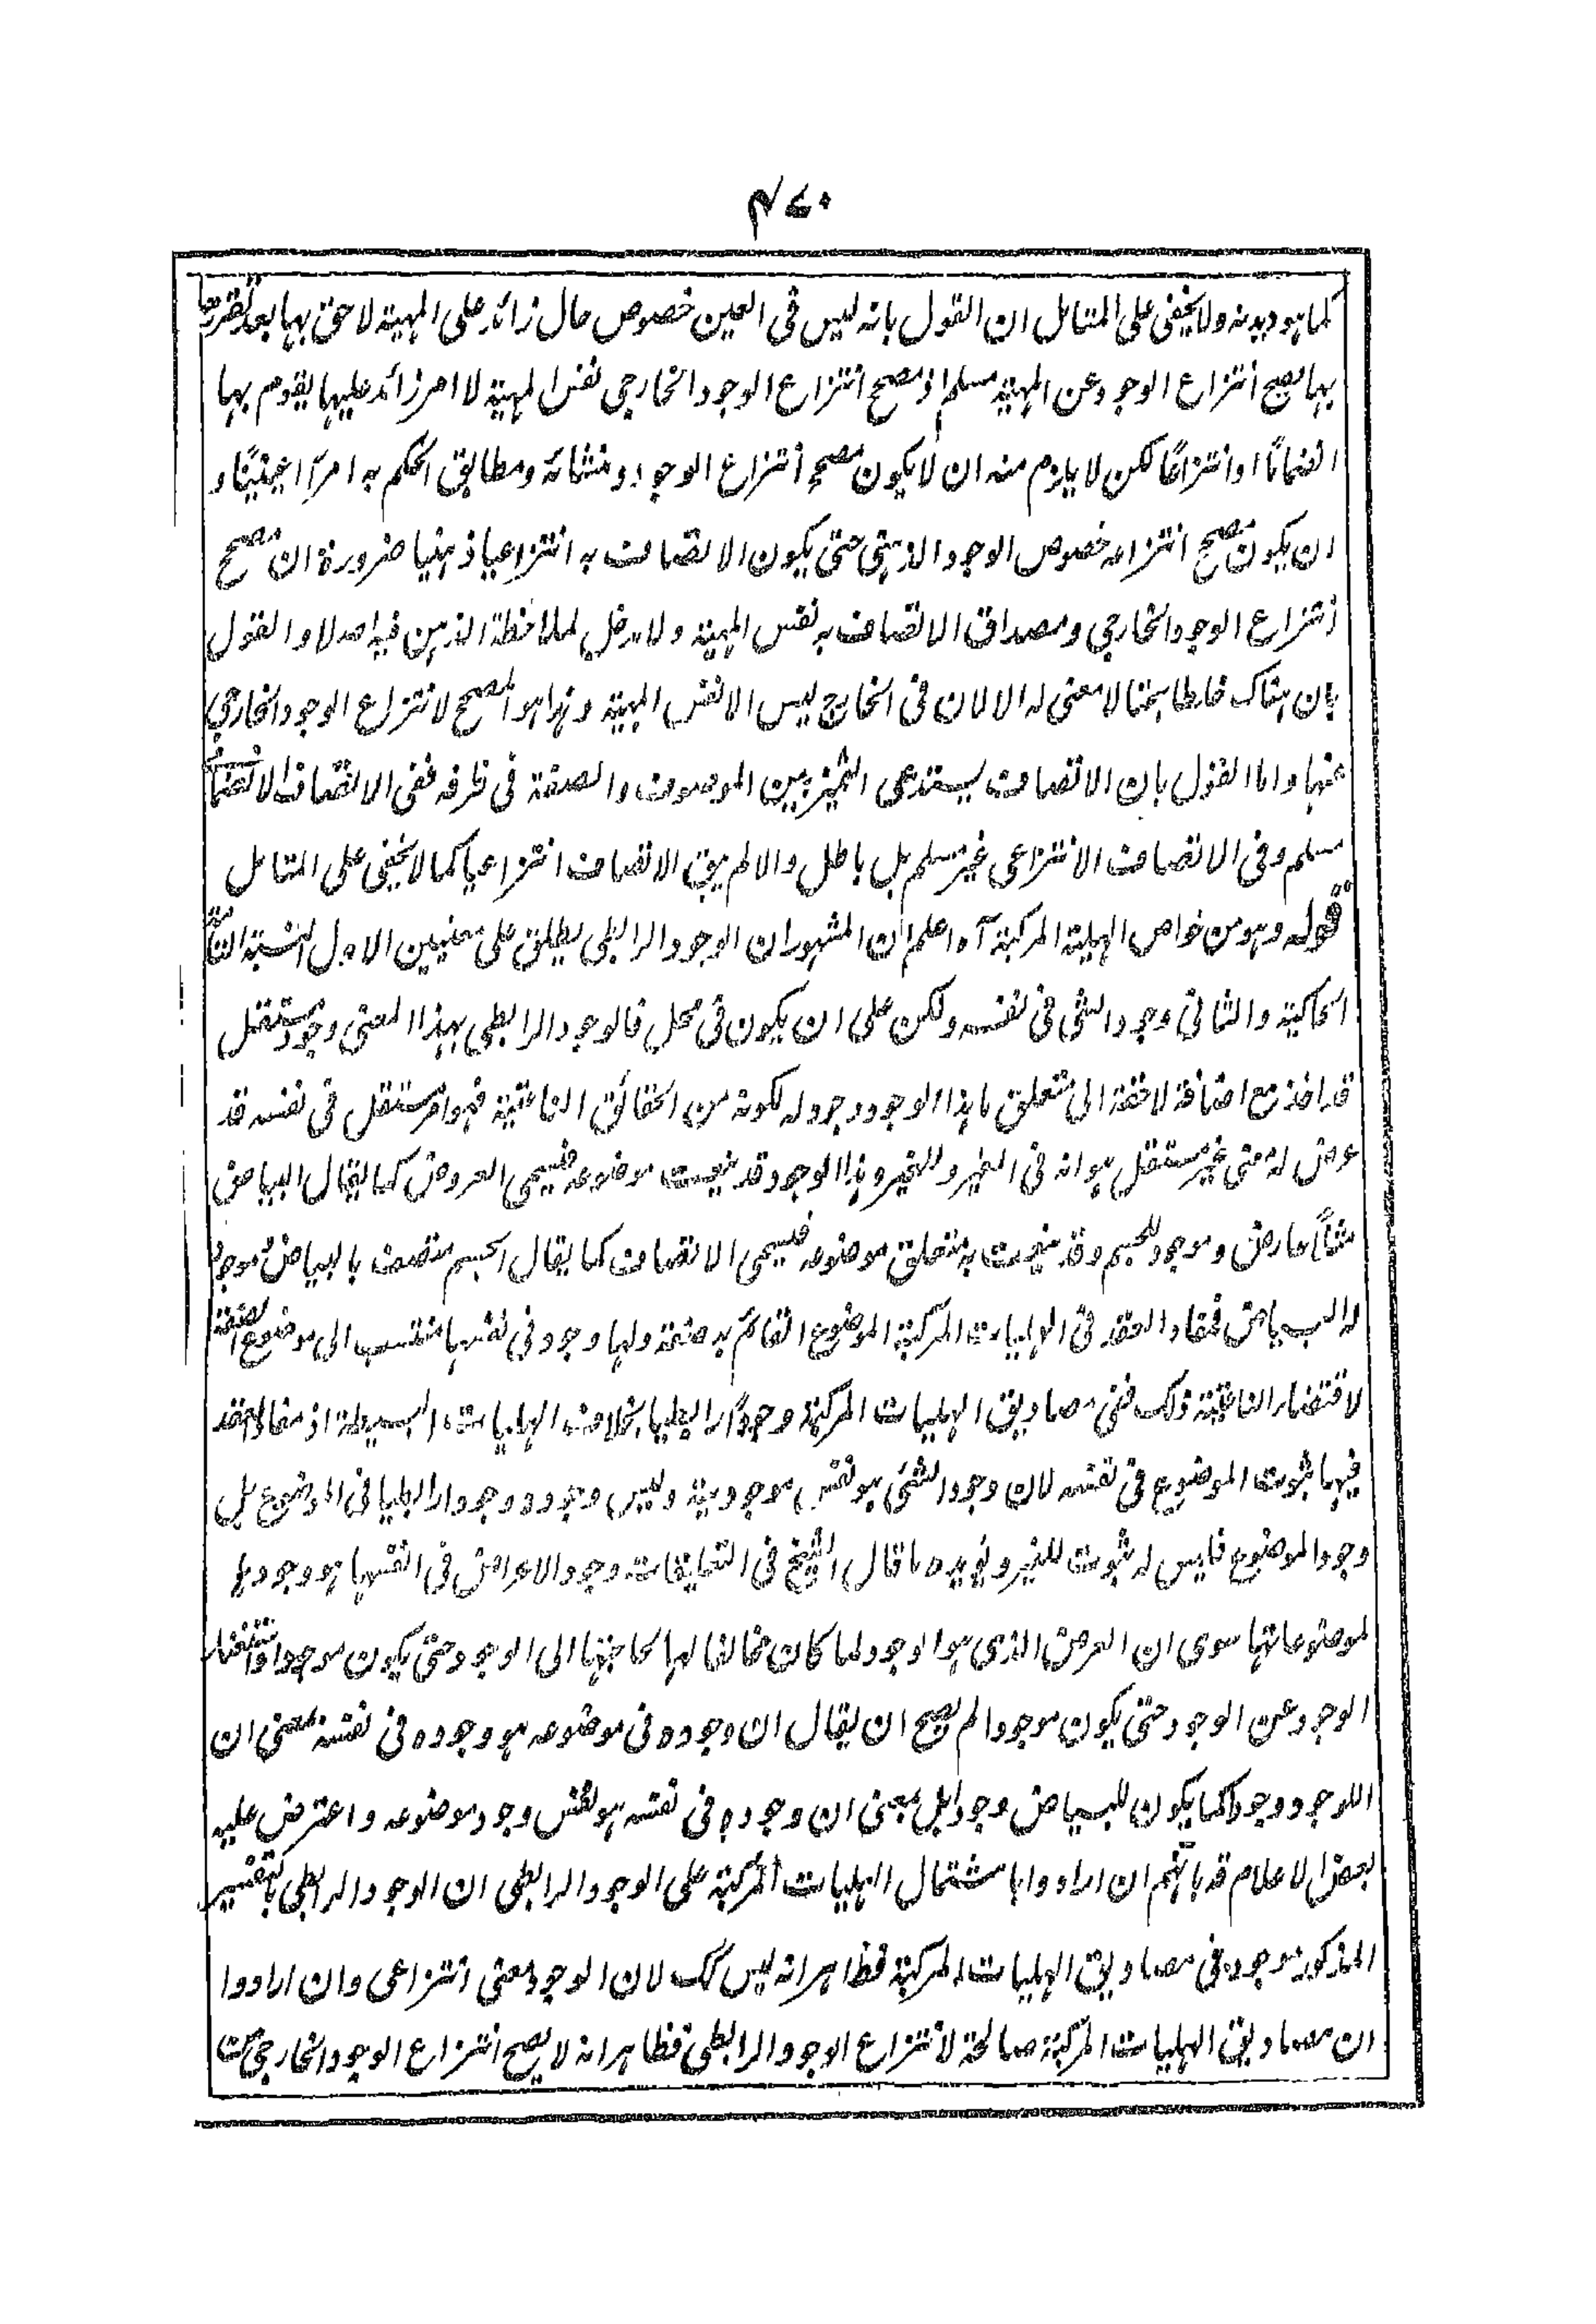 ۴۷۰
كما هو ديدنه ولا يخفى على المتامل ان القول بانه ليس فى العين خصوص حال زائد على المهية لاحق بها بعد تقررها
بها يصح انتزاع الوجود عن المهية مسلم اذ مصحح انتزاع الوجود الخارجي نفس المهية لا امر زائد عليها يقوم بها
انضمامًا او انتزاعًا لكن لا يلزم منه ان لا يكون مصحح انتزاع الوجود ومنشائه ومطابق الحكم به امرًا عينيًا و
ان يكون مصحح انتزاعه خصوص الوجود الذهني حتى يكون الاتصاف به انتزاعيا ذهنيا ضرورة ان مصحح
انتزاع الوجود الخارجي ومصداق الاتصاف به نفس المهية ولا دخل لملاحظة الذهن فيه اصلا والقول
بان هناك خلطا بحتا لا معنى له الا لان فى الخارج ليس الا نفس المهية وهذا هو المصحح لانتزاع الوجود الخارجي
عنها واما القول بان الاتصاف يستدعى التميز بين الموصوف والصفة فى ظرفه ففى الاتصاف الانضمامى
مسلم وفى الاتصاف الانتزاعى غير مسلم بل باطل والا لم يبق الاتصاف انتزاعيا كما لا يخفى على المتامل
قوله وهو من خواص الهلية المركبة آه اعلم ان المشهور ان الوجود الرابطى يطلق على معنيين الاول النسبة التامة
الحاكية والثانى وجود الشئ فى نفسه ولكن على ان يكون فى محل فالوجود الرابطى بهذا المعنى وجود مستقل
قد اخذ مع اضافة لاحقة الى متعلق ما بهذا الوجود وجود له لكونه من الحقائق الناعتية فهو امر مستقل فى نفسه قد
عرض له معنى غير مستقل هو انه فى الغير وللغير وهذا الوجود قد ينعت موضوعه فيسمى العروض كما يقال البياض
مثلًا عارض وموجود للجسم وقد ينعت به متعلق موضوعه فيسمى الاتصاف كما يقال الجسم متصف بالبياض وموجود
له البياض فمفاد العقد فى الهليات المركبة الموضوع القائم به صفة ولها وجود فى نفسها منتسب الى موضوع الصفة
لاقتضاء الناعتية ذلك ففى مصاديق الهليات المركبة وجودًا رابطيا بخلاف الهليات البسيطة اذ مفاد العقد
فيها ثبوت الموضوع فى نفسه لان وجود الشئ هو نفس موجوديته وليس وجوده وجودا رابطيا فى الموضوع بل
وجود الموضوع فليس له ثبوت للغير ويؤيده ما قال الشيخ فى التعليقات وجود الاعراض فى انفسها هو وجودها
لموضوعاتها سوى ان العرض الذى هو الوجود لما كان مخالفا لها لحاجتها الى الوجود حتى يكون موجودا واستغناء
الوجود عن الوجود حتى يكون موجودا لم يصح ان يقال ان وجوده فى موضوعه هو وجوده فى نفسه بمعنى ان
للوجود وجودًا كما يكون للبياض وجود بل بمعنى ان وجوده فى نفسه هو نفس وجود موضوعه واعترض عليه
بعض الاعلام قد بانهم ان ارادوا باشتمال الهليات المركبة على الوجود الرابطى ان الوجود الرابطى بالتفسير
المذكور موجود فى مصاديق الهليات المركبة فظاهر انه ليس كك لان الوجود معنى انتزاعى وان ارادوا
ان مصاديق الهليات المركبة صالحة لانتزاع الوجود الرابطى فظاهر انه لا يصح انتزاع الوجود الخارجي